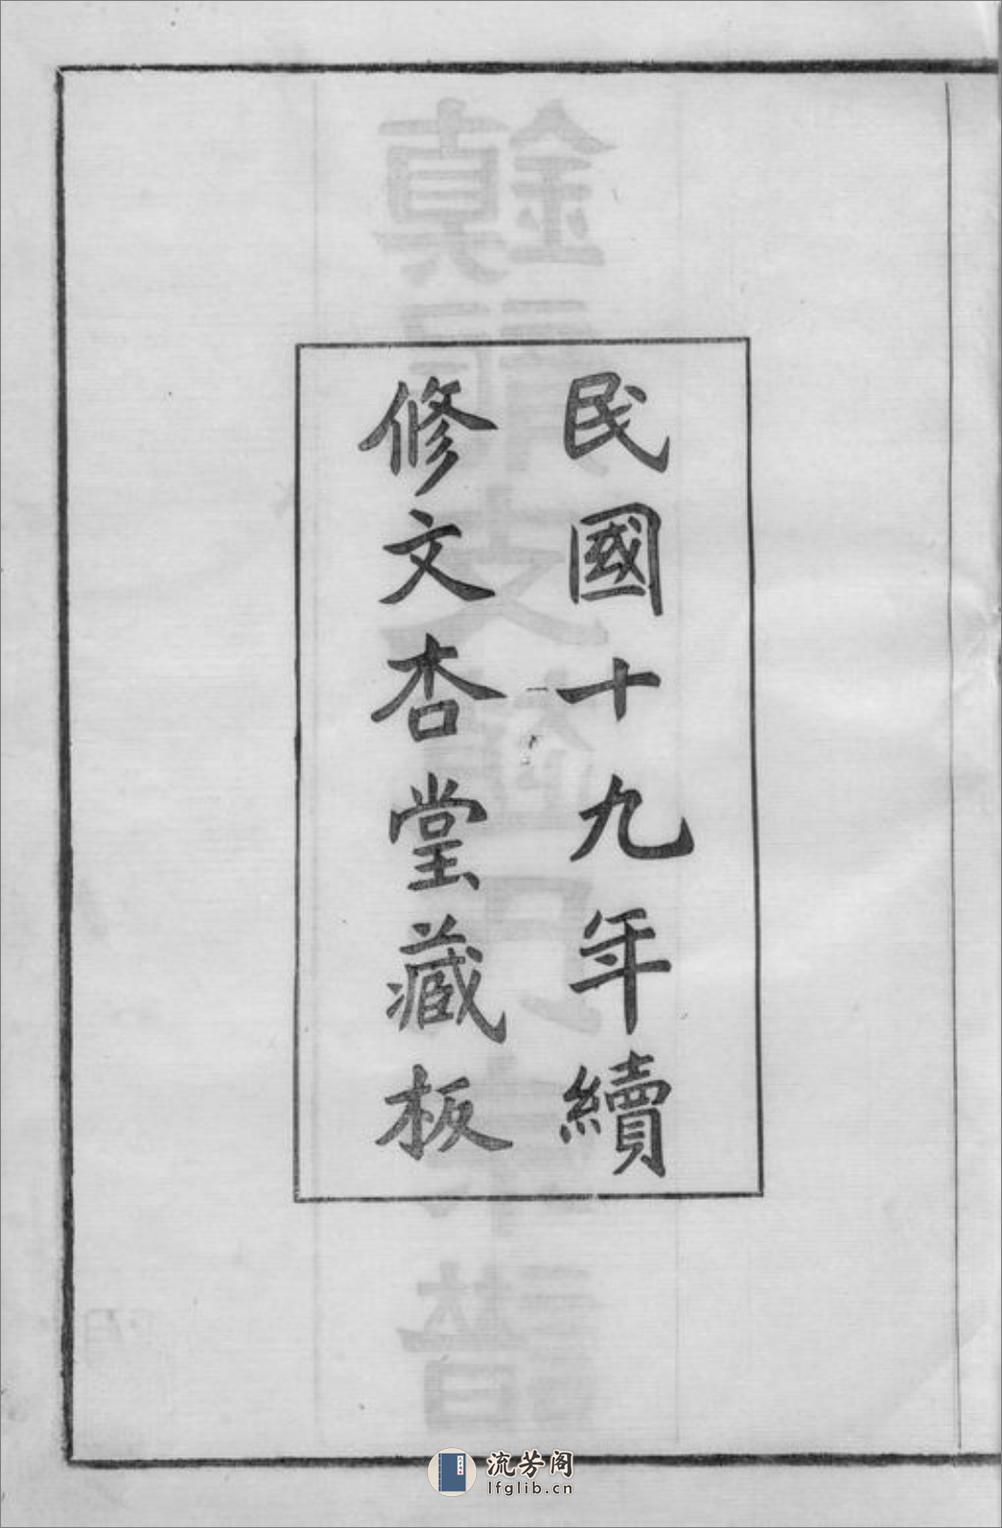 民國十九年續
修文杏堂藏板
流芳阁
lfglib.cn